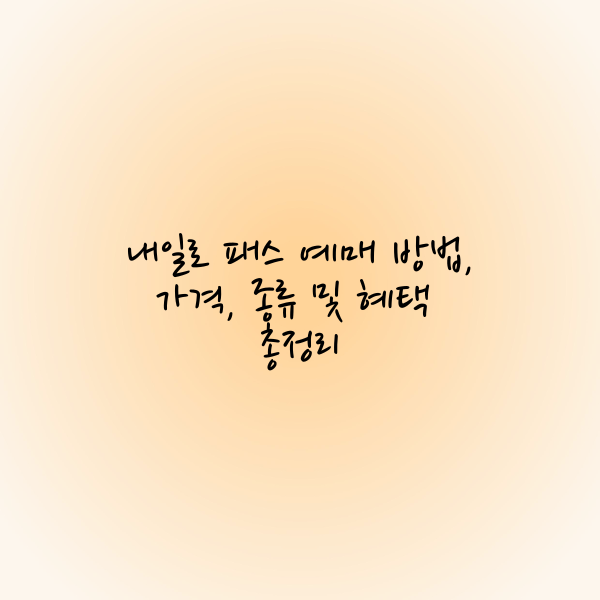 내일로 패스 예매 방법,
가격, 종류 및 혜택
총정리